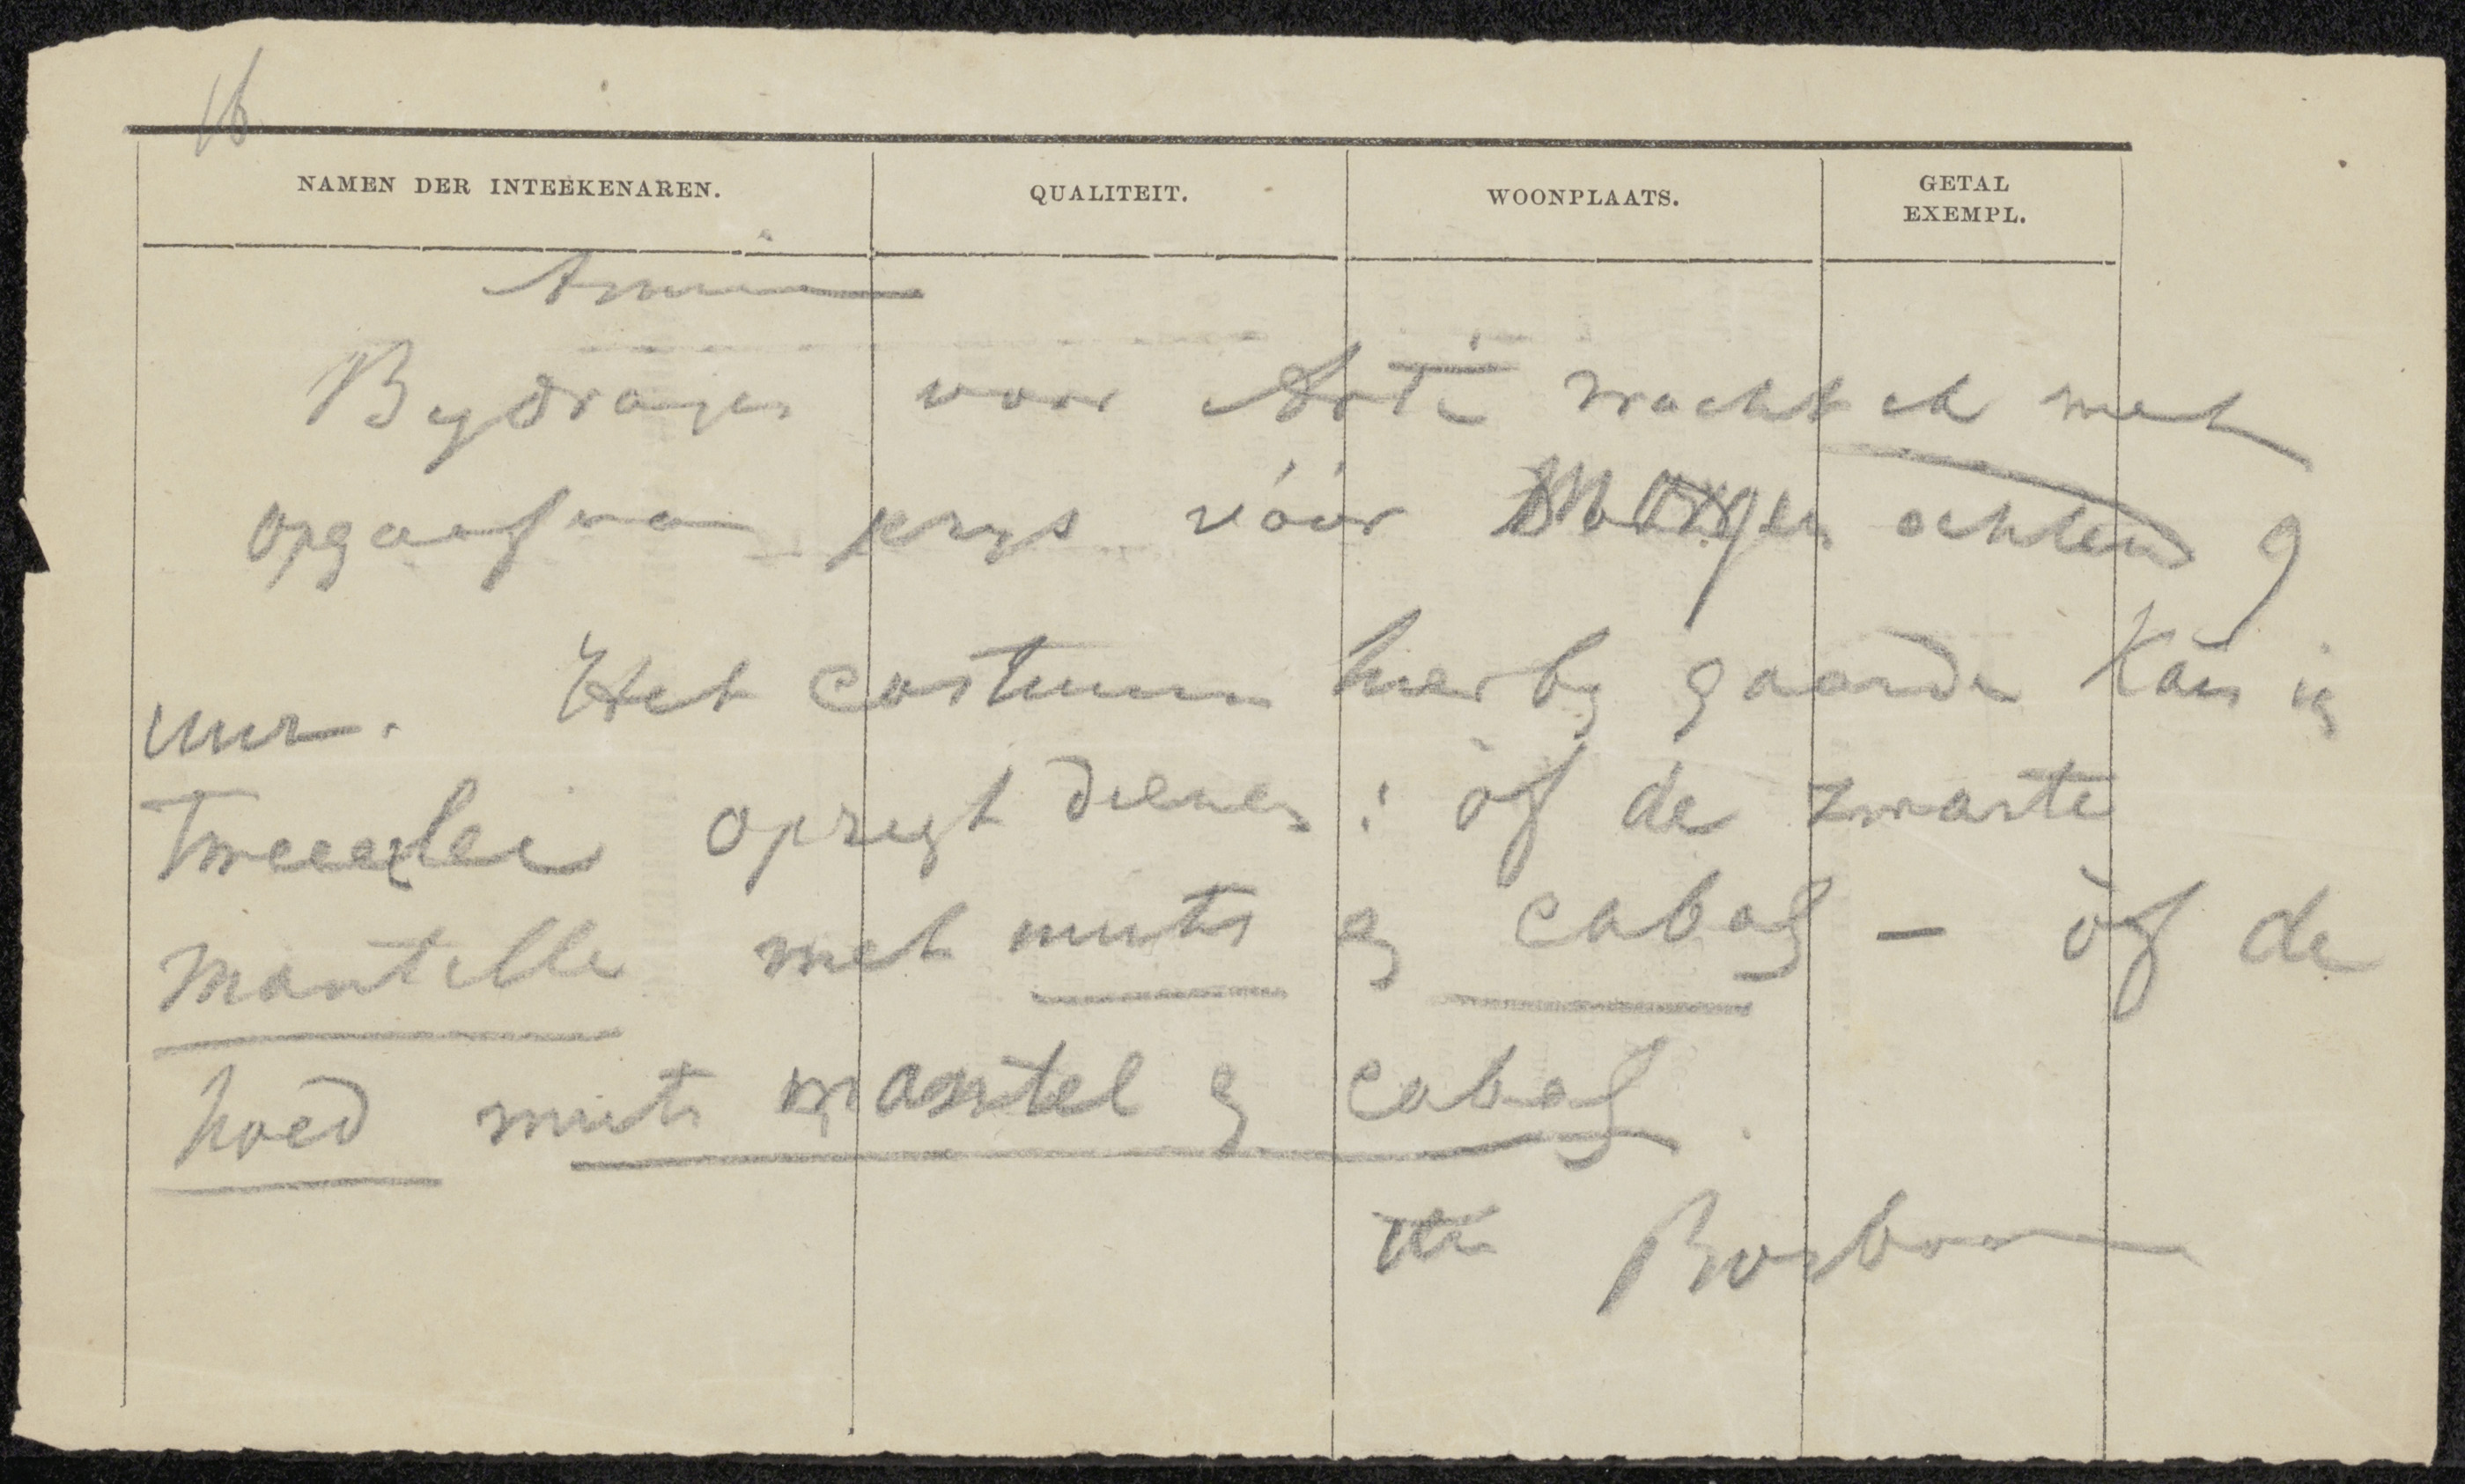 16
NAMEN DER INTEEKENAREN. QUALITEIT. WOONPLAATS. GETAL EXEMPL.
Amice
Bydragen voor Arti wacht ik met
opgaaf van prys vóór Morgen ochtend 9
uur. Het costuum hierby gaande kan in
tweeerlei opzigt dienen: òf de zwarte
mantille met muts en cabas – òf de
hoed muts mantel en cabas.
tt Bosboom